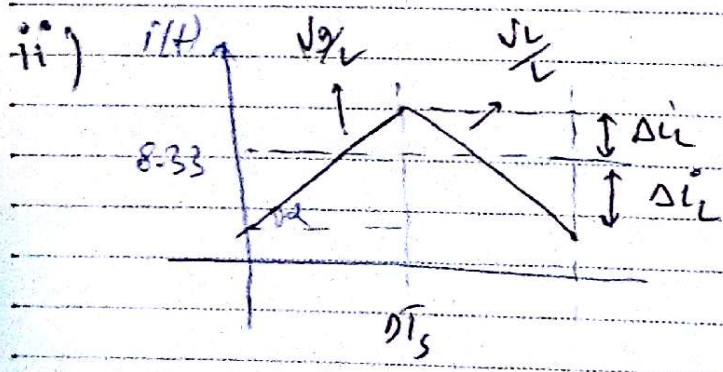 ii) i(t) Vg/L VL/L
8.33 ΔiL
ΔiL
DTs